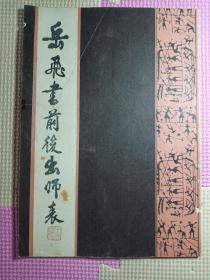 岳飛書前後出師表